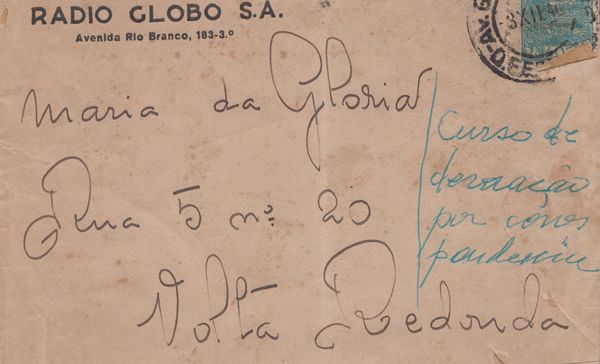 RADIO GLOBO S.A.
Avenida Rio Branco, 183-3.º
Maria da Gloria
Rua 5 nº 20
Volta Redonda
Curso de
por corres
pondencia